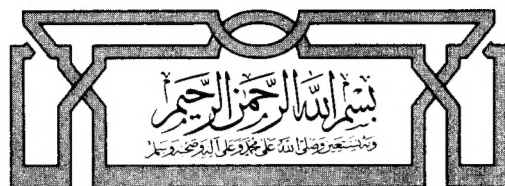 بسم الله الرحمن الرحيم
وبه نستعين وصلى الله على محمد وعلى آله وصحبه وسلم